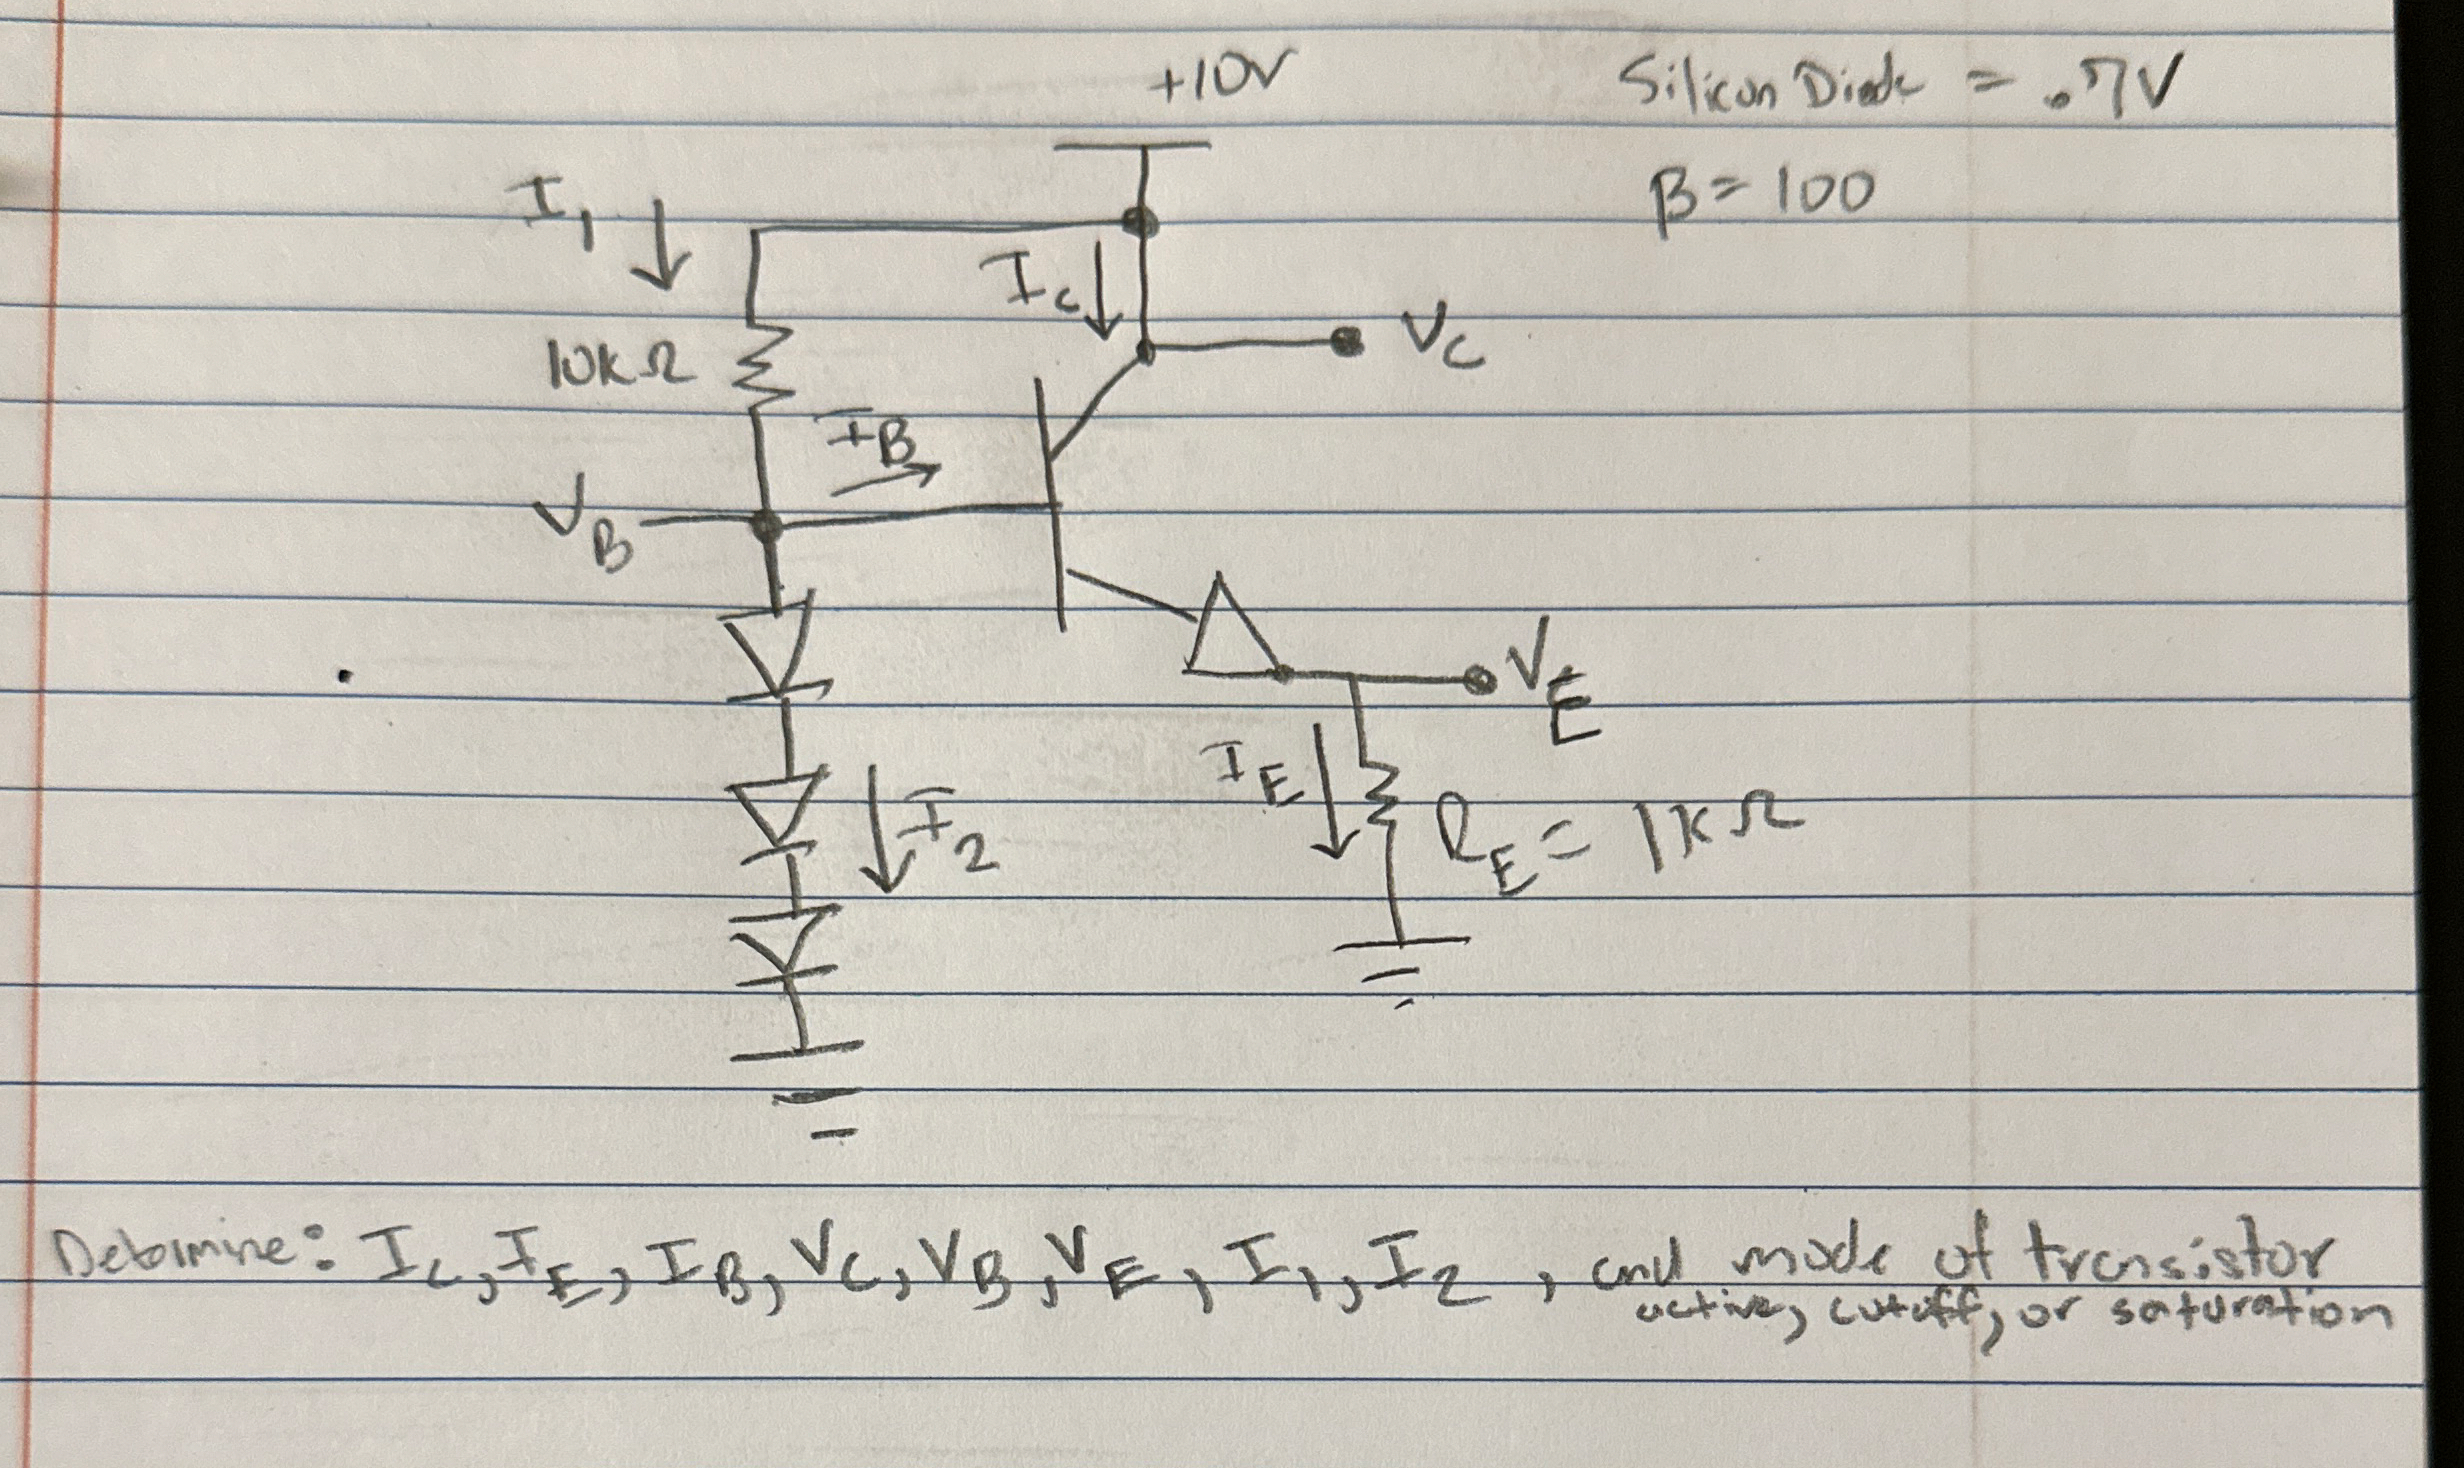 +10V
Silicon Diode = .7V
β = 100
I₁
I_C
V_C
10KΩ
I_B
V_B
V_E
I_E
R_E = 1KΩ
I₂
Determine: I_C, I_E, I_B, V_C, V_B, V_E, I₁, I₂, and mode of transistor
active, cutoff, or saturation